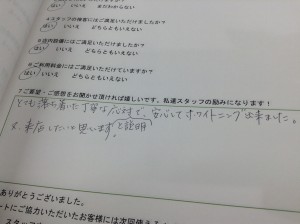 4.スタッフの接客にはご満足いただけましたか?
はい いいえ どちらともいえない
5.店内設備にはご満足いただけましたか?
はい いいえ どちらともいえない
6.ご利用料金にはご満足いただけましたか?
はい いいえ どちらともいえない
7.ご要望・ご感想をお聞かせ頂ければ嬉しいです。私達スタッフの励みになります!
とても落ち着いた丁寧な応対で、安心してホワイトニング出来ました。
又、来店したいと思います と説明
ありがとうございました。
ートにご協力いただいたお客様には次回使える